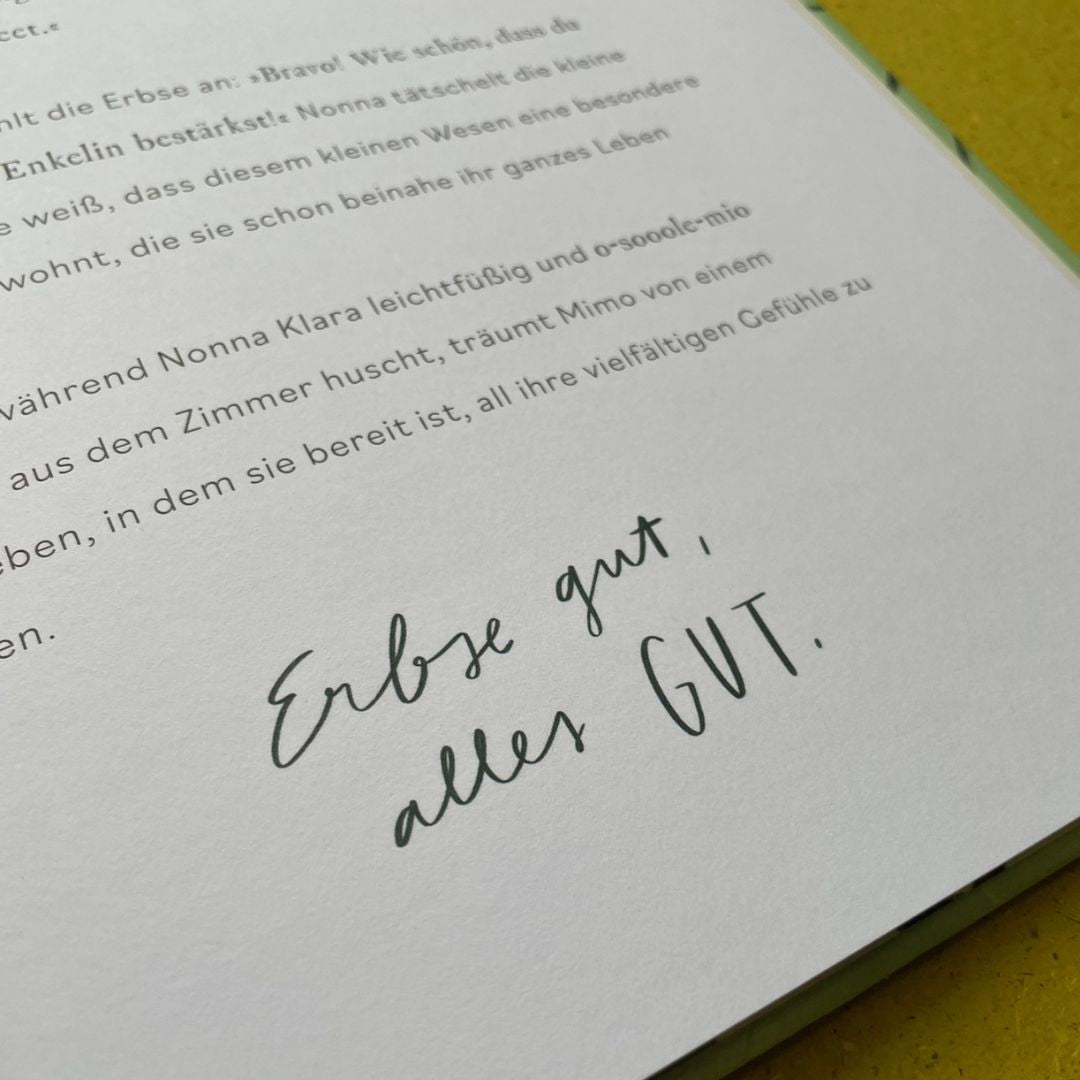 die Erbse an: »Bravo! Wie schön, dass du
Enkelin bestärkst!« Nonna tätschelt die kleine
weiß, dass diesem kleinen Wesen eine besondere
wohnt, die sie schon beinahe ihr ganzes Leben
während Nonna Klara leichtfüßig und o-sooole-mio
aus dem Zimmer huscht, träumt Mimo von einem
eben, in dem sie bereit ist, all ihre vielfältigen Gefühle zu
en.
Erbse gut,
alles GUT.